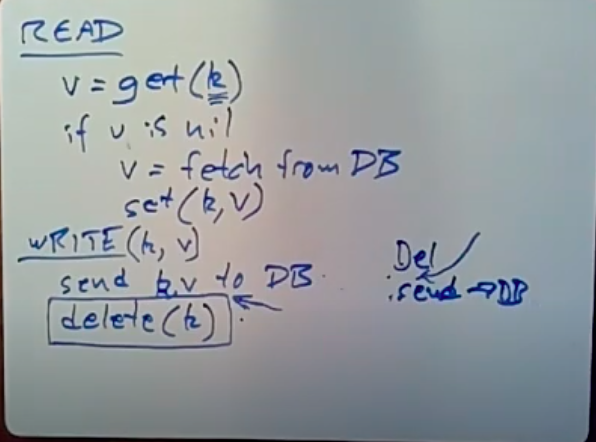 READ
v = get(k)
if v is nil
v = fetch from DB
set(k,v)
WRITE(k, v)
send k,v to DB.
delete(k).
Del
send → DB